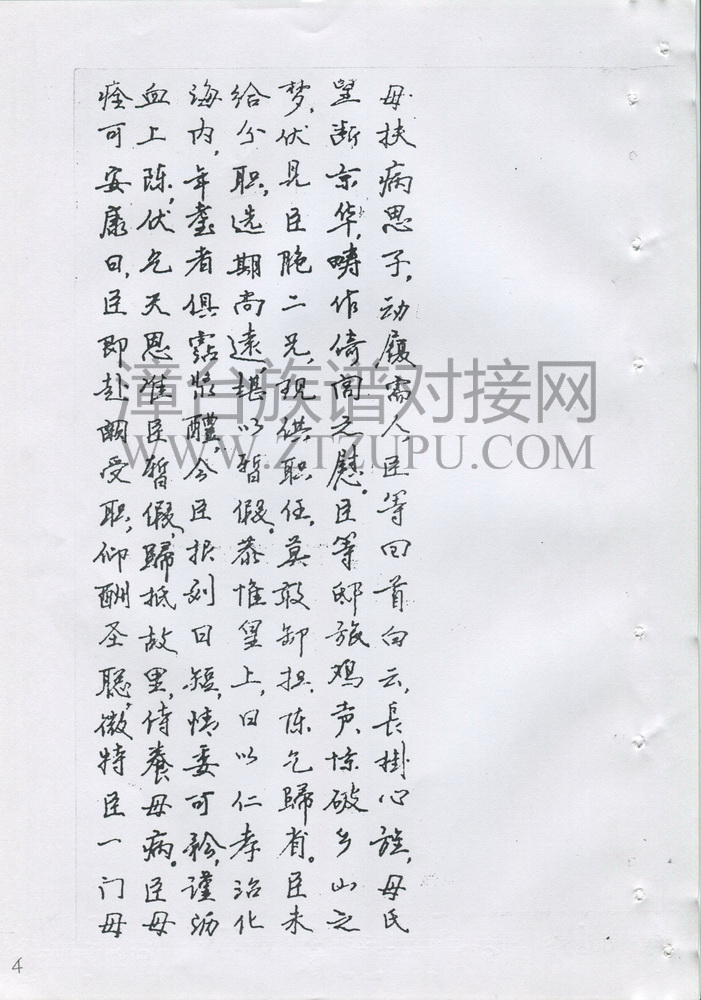 母扶病思子，动履需人，臣等曰首白云，長掛心旌，母氏
望断京华，畴作倚闾之慰。臣等邸旅鸡声，惊破乡山之
梦，伏見臣胞二兄，现供职任，莫敢卸担，陈乞歸省。臣未
给分职，选期尚遠，堪以暂假。恭惟皇上，日以仁孝治化
海内，年耋者俱霑醲醴，今臣报刘日短，情委可矜，谨沥
血上陈，伏乞天恩准臣暂假，歸抵故里，侍養母病。臣母
痊可安康日，臣即赴阙受职，仰酬圣聪，微特臣一门母
漳台族谱对接网
WWW.ZTZUPU.COM
4